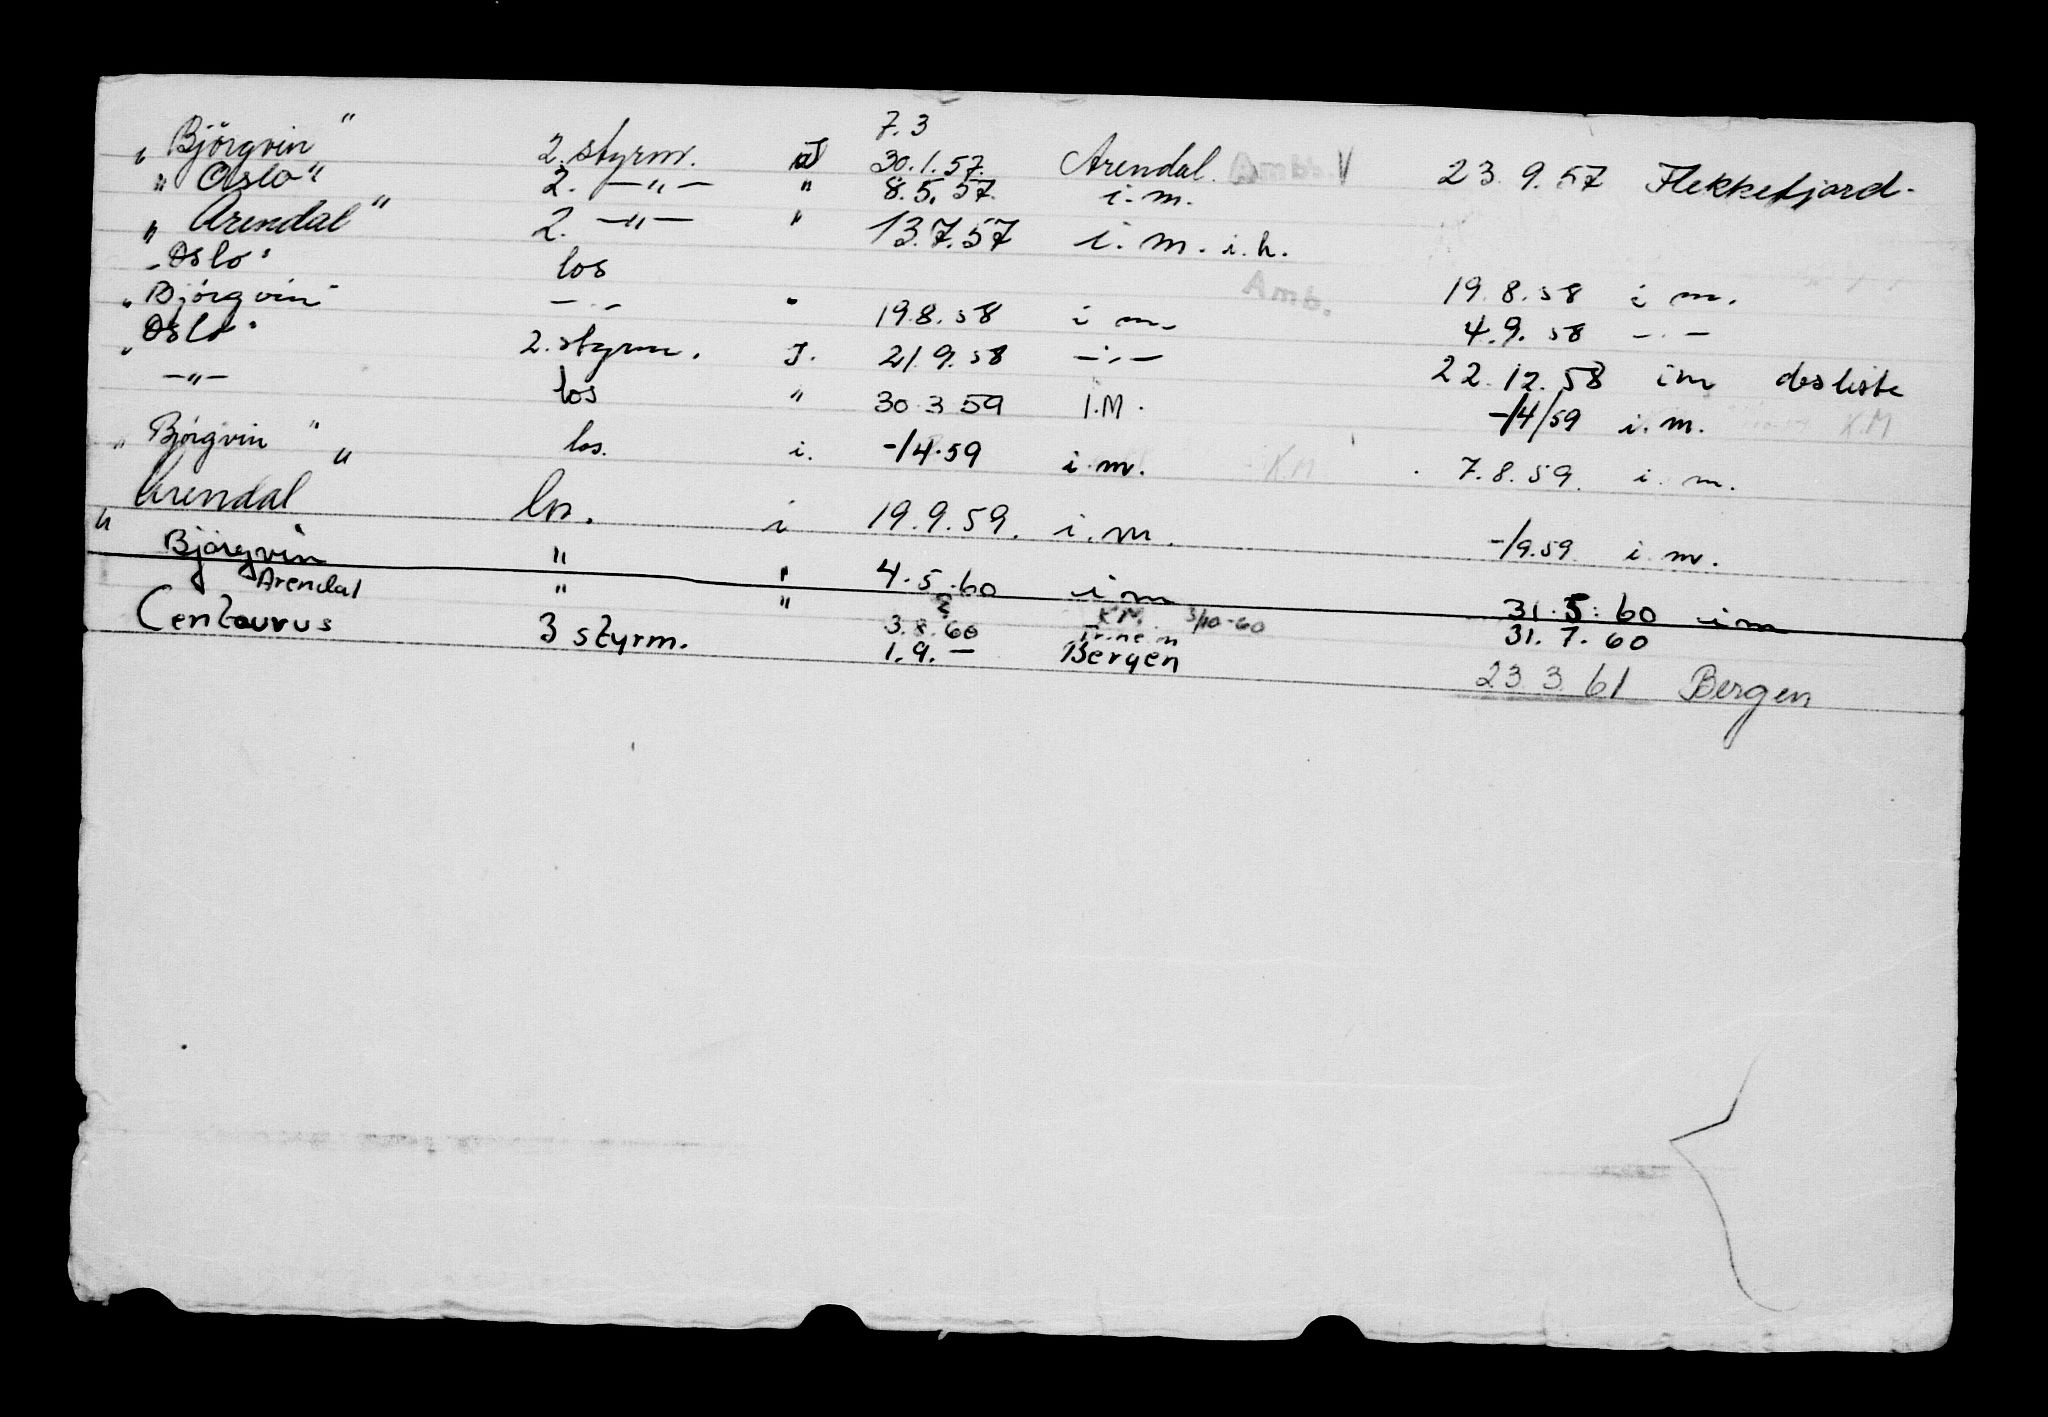 7.3
„ Björgvin " 2. styrm. J 30.1.57. Arendal. Amb. V 23.9.57 Flekkefjord.
„ Oslo" 2. —"— " 8.5.57. i.m.
„ Arendal" 2. —"— " 13.7.57 i.m. i.h.
„ Oslo" los 19.8.58 i m.
„ Björgvin" —"— " 19.8.58 i m. Amb. 4.9.58 —"—
„ Oslo" 2. styrm. J. 21.9.58 —"— 22.12.58 im
—"— los " 30.3.59 I.M. -/4/59 i.m. K.M
„ Björgvin " los. i. -/4.59 i.m. K.M. 7.8.59. i.m.
„ Arendal " los. i 19.9.59. i.m. -/9.59 i.m.
" Björgvin " " 4.5.60 im 31.5.60 im
Arendal " " 3.8.60 K.M. 3/10-60 31.7.60
Centaurus 3 styrm. 1.9.— Bergen 23.3.61 Bergen